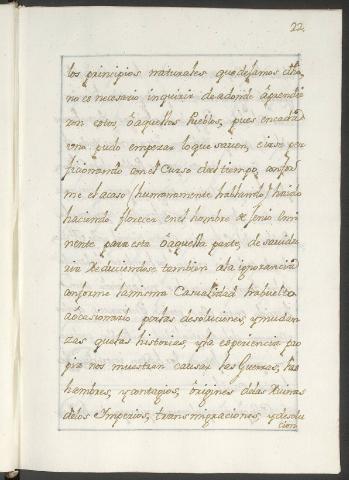 22.
los principios naturales que dejamos dho,
no es necesario inquirir de adonde aprendie
ron estos, ò aquellos Pueblos, pues en cada
uno pudo empezar lo que saven, e irse per
ficionando con el Curso del tiempo, confor
me el acaso (humanamente hablando) ha ido
haciendo florecer en el hombre de Jenio Emi
nente para esta ò aquella parte, de savidu
ria Reduciendose tambien a la ignorancia
conforme la misma Casualidad ha buelto
a ocasionarlo por las desoluciones, y mudan
zas que las historias, y la experiencia pro
pia nos muestran causar las Guerras, las
hambres, y contagios, origines de las Ruinas
de los Imperios, transmigraciones, y desolu
cion